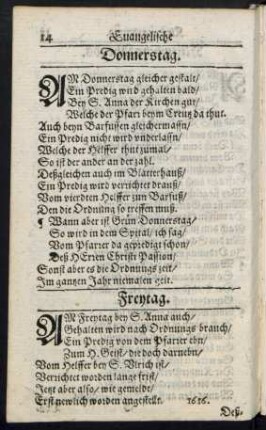 14 Euangelische
Donnerstag.
AM Donnerstag gleicher gestalt/
Ein Predig wird gehalten bald/
Bey S. Anna der Kirchen gut/
Welche der Pfarr beym Creutz da thut.
Auch beyn Barfussen gleichermassn/
Ein Predig nicht wird vnderlassn/
Welche der Helffer thut zumal/
So ist der ander an der zahl.
Deßgleichen auch im Blatterhauß/
Ein Predig wird verrichtet drauß/
Vom vierdten Helffer zum Barfuß/
Den die Ordnung so treffen muß.
Wann aber ist Grün Donnerstag/
So wird in dem Spital/ ich sag/
Vom Pfarrer da geprediget schon/
Deß HErren Christi Passion/
Sonst aber es die Ordnungs zeit/
Im gantzen Jahr niemalen geit.
Freytag.
AM Freytag bey S. Anna auch/
Gehalten wird nach Ordnungs brauch/
Ein Predig von dem Pfarrer ebn/
Zum H. Geist/ die doch darnebn/
Vom Helffer bey S. Vlrich ist/
Verrichtet worden lange frist/
Jetzt aber also/ wie gemeldt/
Erst newlich worden angestellt. 1616.
Deß-